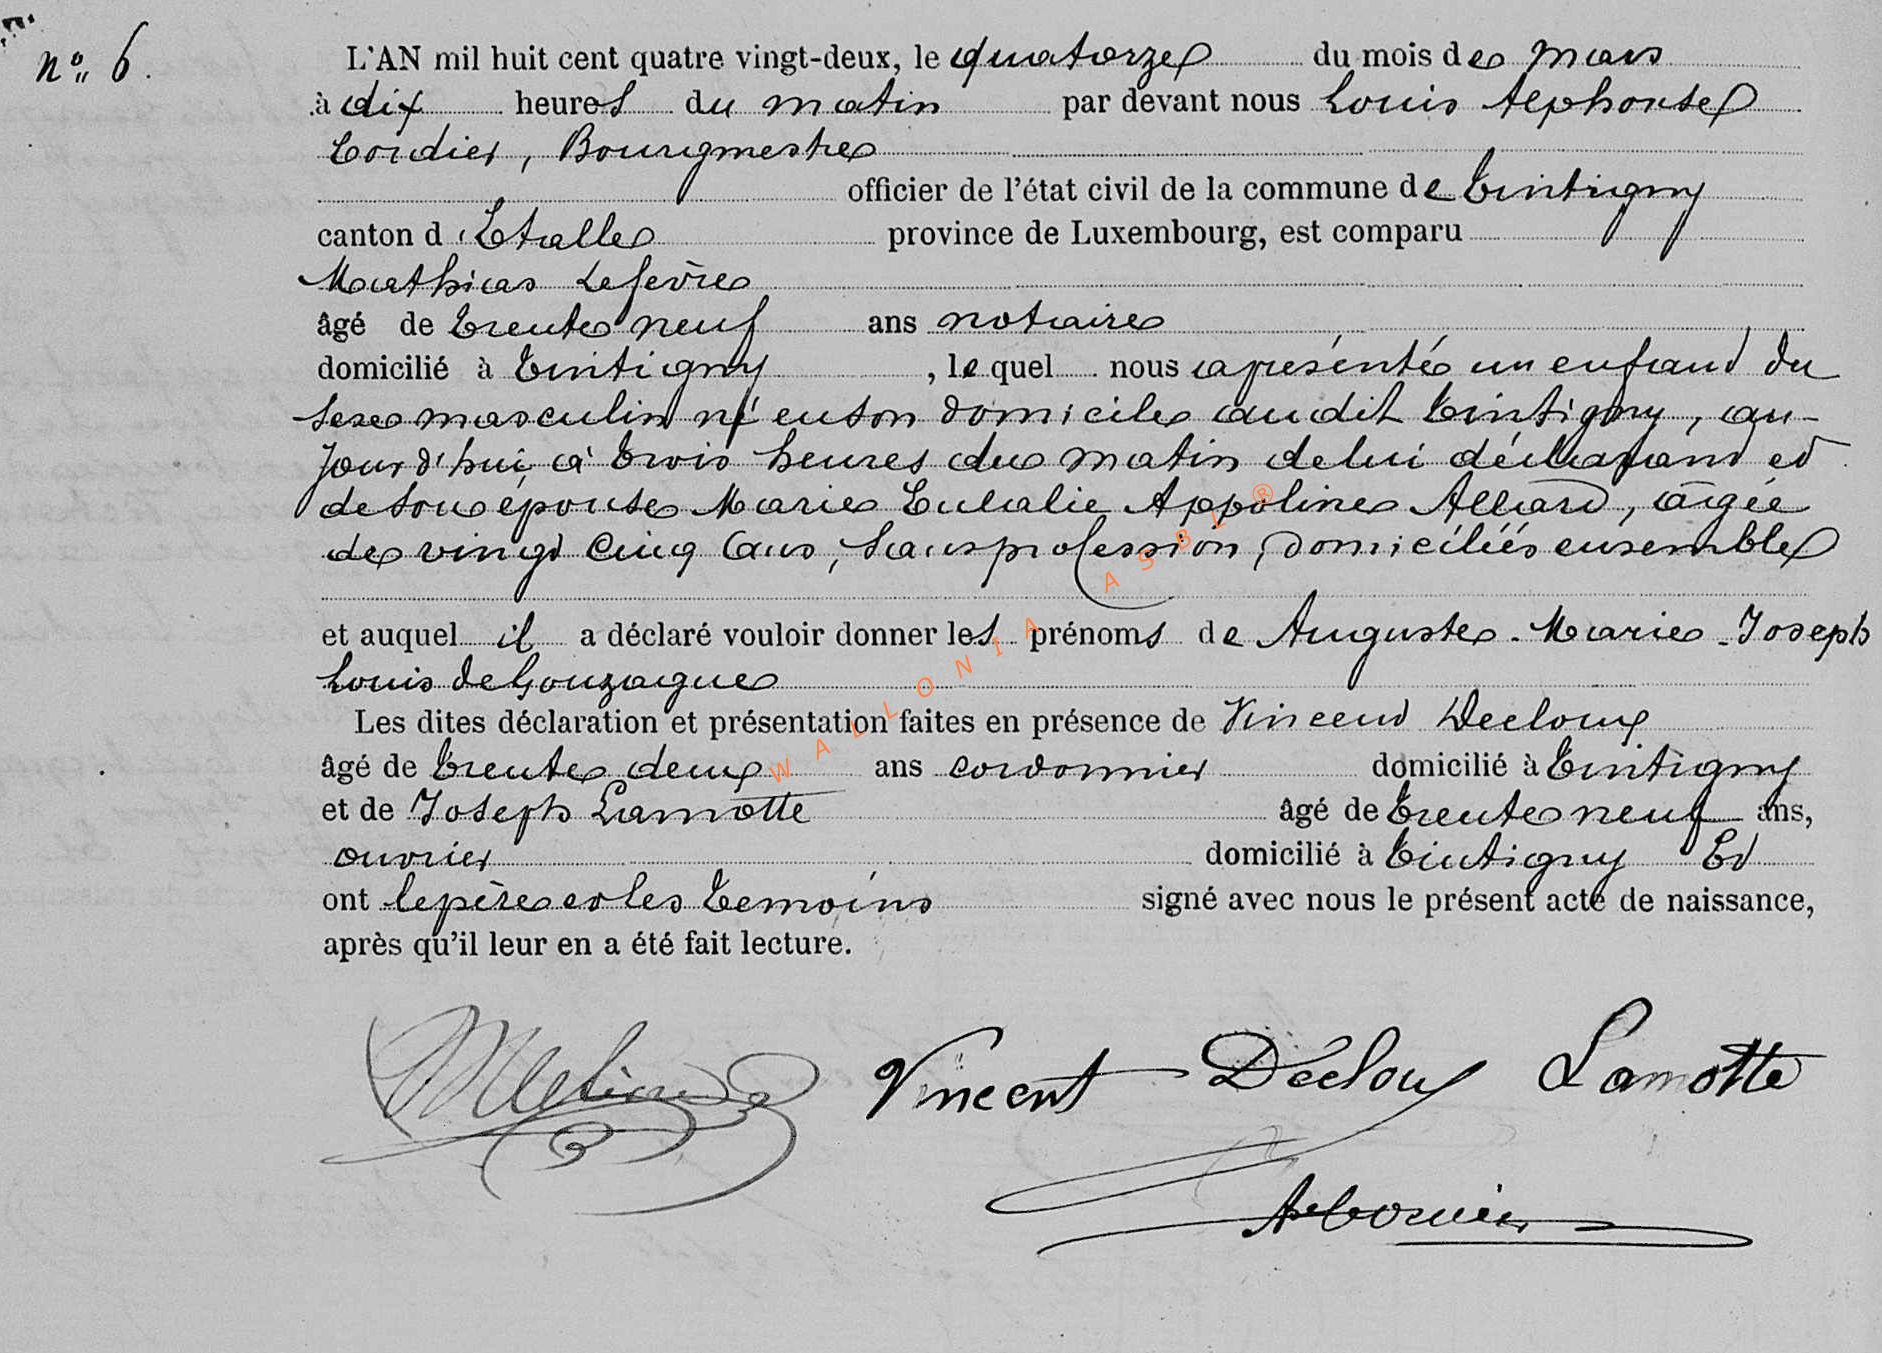 n° 6.
L'AN mil huit cent quatre vingt-deux, le quatorze du mois de mars
à dix heures du matin par devant nous Louis Alphonse
Cordier, Bourgmestre
officier de l'état civil de la commune de Tintigny
canton d'Etalle province de Luxembourg, est comparu
Mathias Lefèvre
âgé de trente neuf ans notaire
domicilié à Tintigny, lequel nous a présenté un enfand du
sexe masculin né en son domicile audit Tintigny, au-
jourd'hui, à trois heures du matin de lui déclarand et
de son épouse Marie Eulalie Appoline Allard, âgée
de vingt cinq ans, sans profession, domiciliés ensemble
et auquel il a déclaré vouloir donner les prénoms de Auguste-Marie-Joseph
Louis de Gonzague
Les dites déclaration et présentation faites en présence de Vincend Decloux
âgé de trente deux ans cordonnier domicilié à Tintigny
et de Joseph Lamotte âgé de trente neuf ans,
ouvrier domicilié à Tintigny Et
ont le père et les temoins signé avec nous le présent acte de naissance,
après qu'il leur en a été fait lecture.
Vincent Décloux Lamotte
WALLONIA ASBL ®